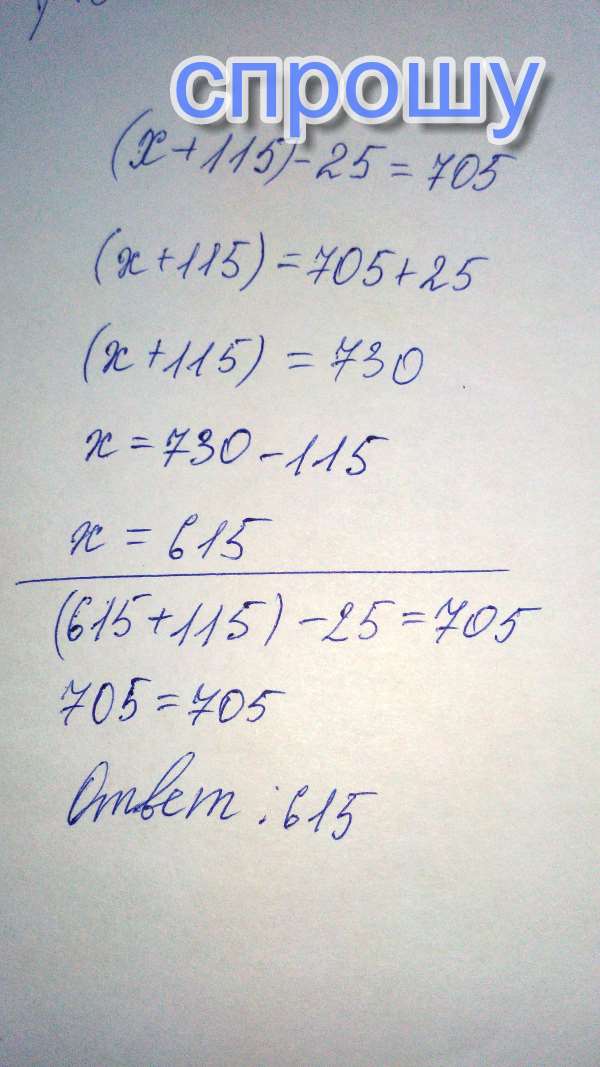 спрошу
(x+115)-25=705
(x+115)=705+25
(x+115)=730
x=730-115
x=615
(615+115)-25=705
705=705
Ответ: 615